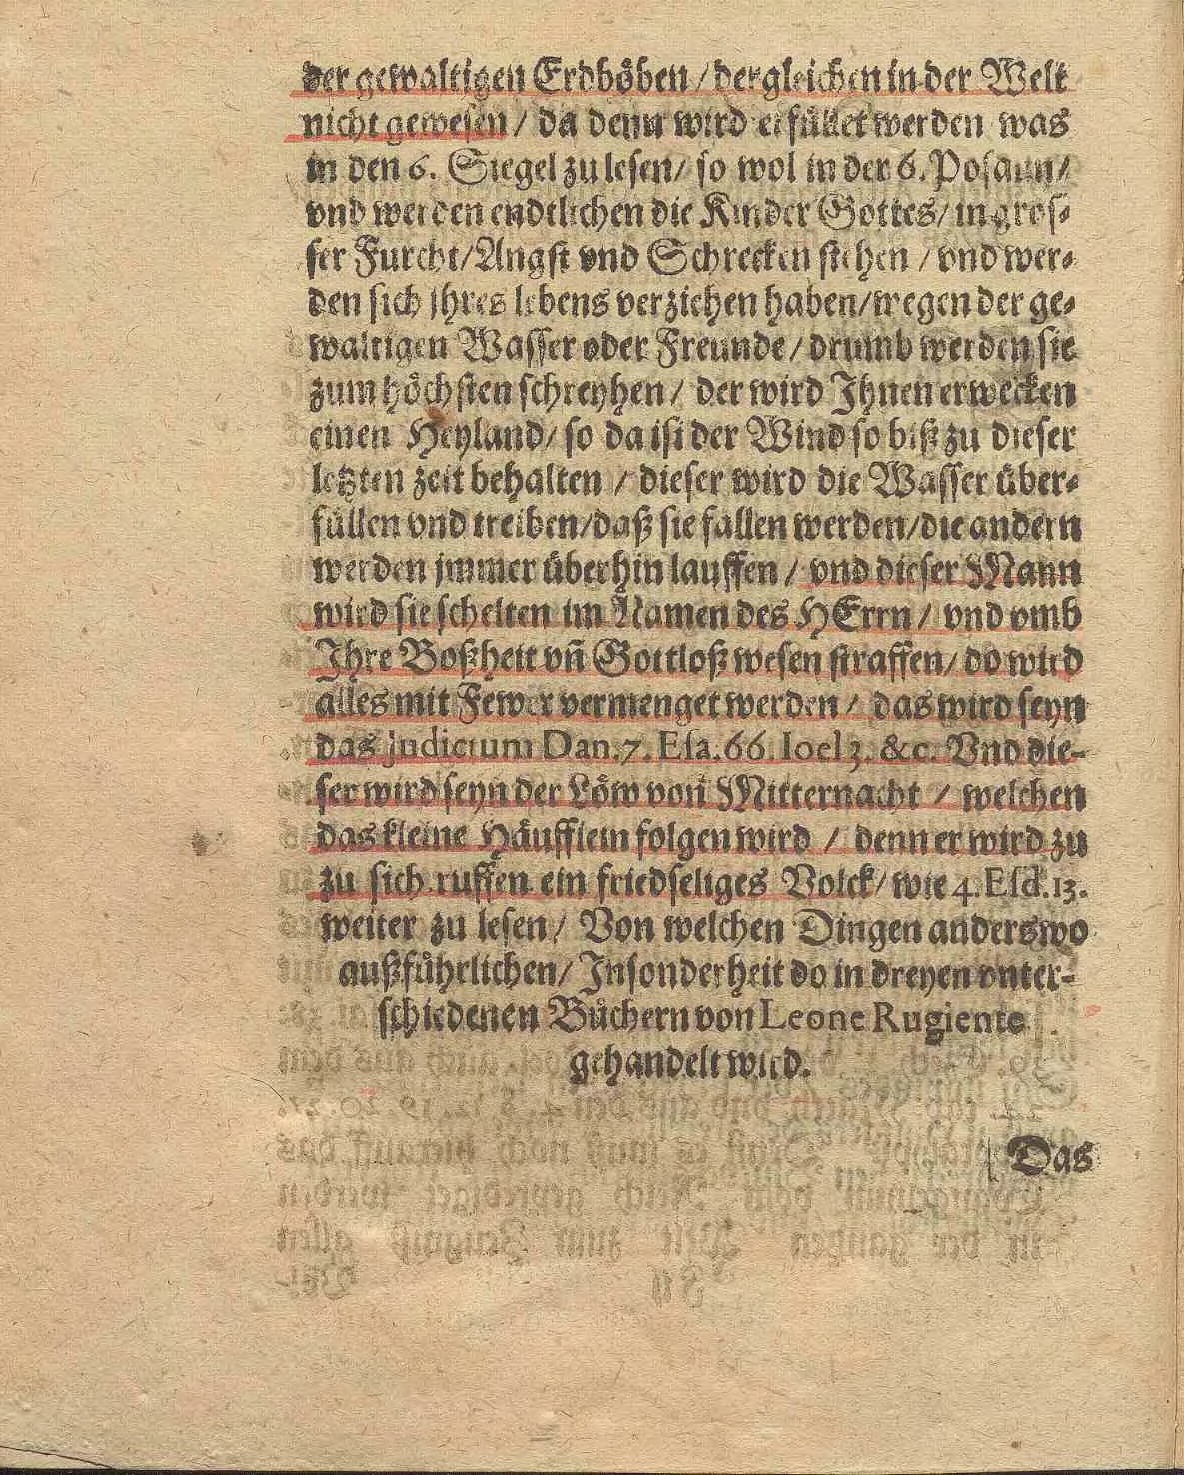 der gewaltigen Erdböben / dergleichen in der Welt
nicht gewesen / da denn wird erfüllet werden was
in den 6. Siegel zu lesen / so wol in der 6. Posaun /
vnd werden endtlichen die Kinder Gottes / in gros-
ser Furcht / Angst vnd Schrecken stehen / vnd wer-
den sich jhres lebens verziehen haben / wegen der ge-
waltigen Wasser oder Freunde / drumb werden sie
zum höchsten schreyhen / der wird Ihnen erwecken
einen Heyland / so da ist der Wind so biß zu dieser
letzten zeit behalten / dieser wird die Wasser über-
füllen vnd treiben / daß sie fallen werden / die andern
werden jmmer überhin lauffen / vnd dieser Mann
wird sie schelten im Namen des HErrn / vnd vmb
Ihre Boßheit vn̄ Gottloß wesen straffen / do wird
alles mit Fewer vermenget werden / das wird seyn
das judicium Dan. 7. Esa. 66. Ioel 3. &c. Vnd die-
ser wird seyn der Löw von Mitternacht / welchen
das kleine Häufflein folgen wird / denn er wird zu
zu sich ruffen ein friedseliges Volck / wie 4. Esd. 13.
weiter zu lesen / Von welchen Dingen anderswo
außführlichen / Insonderheit do in dreyen vnter-
schiedenen Büchern von Leone Rugiente
gehandelt wird.
Das